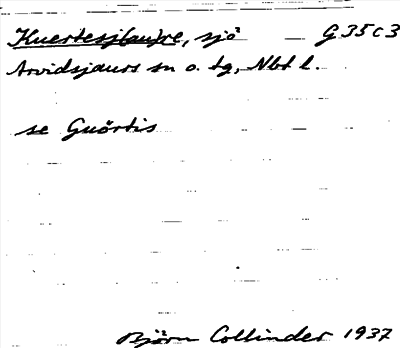 Kuertesj(au)re, sjö G 35 c 3
Arvidsjaurs sn o. tg, Nbt l.
se Guörtis
Björn Collinder 1937